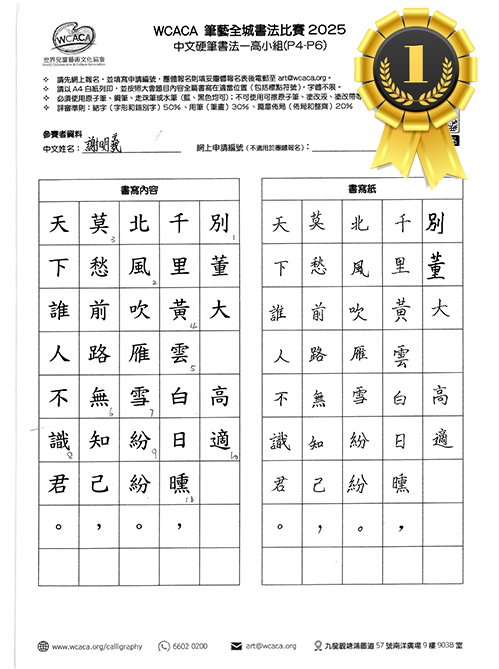 WCACA
世界兒童藝術文化協會
World Children's Arts & Culture Association
WCACA 筆藝全城書法比賽 2025
中文硬筆書法—高小組(P4-P6)
請先網上報名,並填寫申請編號,團體報名則填妥團體報名表後電郵至 art@wcaca.org。
請以 A4 白紙列印,並按照大會題目內容全篇書寫在適當位置(包括標點符號),字體不限。
必須使用原子筆、鋼筆、走珠筆或水筆(藍、黑色均可);不可使用可擦原子筆、塗改液、塗改帶等
評審準則:結字(字形和錯別字)50%、用筆(筆畫)30%、篇章佈局(佈局和整齊)20%
1
參賽者資料
中文姓名: 謝明義
網上申請編號(不適用於團體報名):
書寫內容
別董大 高適
千里黃雲白日曛,
北風吹雁雪紛紛。
莫愁前路無知己,
天下誰人不識君。
書寫紙
別董大 高適
千里黃雲白日曛,
北風吹雁雪紛紛。
莫愁前路無知己,
天下誰人不識君。
www.wcaca.org/calligraphy
6602 0200
art@wcaca.org
九龍觀塘鴻圖道 57 號南洋廣場 9 樓 903B 室